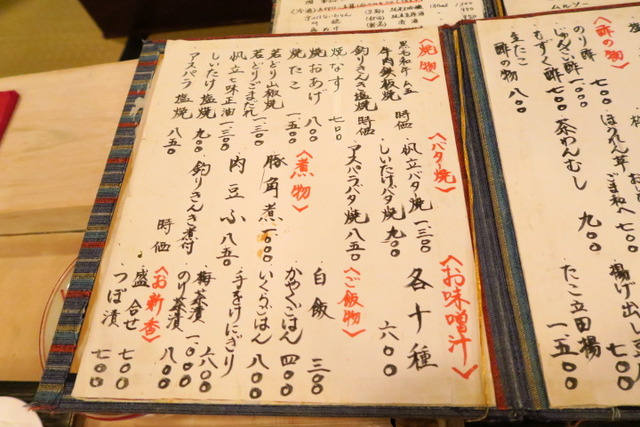 〈酢の物〉
のり酢 七〇〇
じゅんさい酢 一〇〇〇
もずく酢 七〇〇
主たこ
酢の物 八〇〇
ほうれん草
ごま和へ 七〇〇
茶わんむし 九〇〇
たこ立田揚 一五〇〇
〈焼物〉
黒毛和牛
牛肉鉄板焼 時価
釣りきんき塩焼 時価
焼なす 七〇〇
焼おあげ 八〇〇
焼たこ 一五〇〇
若どり山椒焼
若どりごまだれ 一三〇〇
帆立七味正油 一三〇〇
しいたけ塩焼 九〇〇
アスパラ塩焼 八五〇
〈バター焼〉
帆立バタ焼 一三〇〇
しいたけバタ焼 九〇〇
アスパラバタ焼 八五〇
〈煮物〉
豚角煮 一〇〇〇
肉豆ふ 八五〇
釣りきんき煮付 時価
〈お味噌汁〉
各十種 六〇〇
〈ご飯物〉
白飯 三〇〇
かやくごはん 四〇〇
いくらごはん 八〇〇
手をけにぎり
一〇〇〇
梅茶漬 六〇〇
のり茶漬 八〇〇
〈お新香〉
盛合せ 七〇〇
つぼ漬 七〇〇